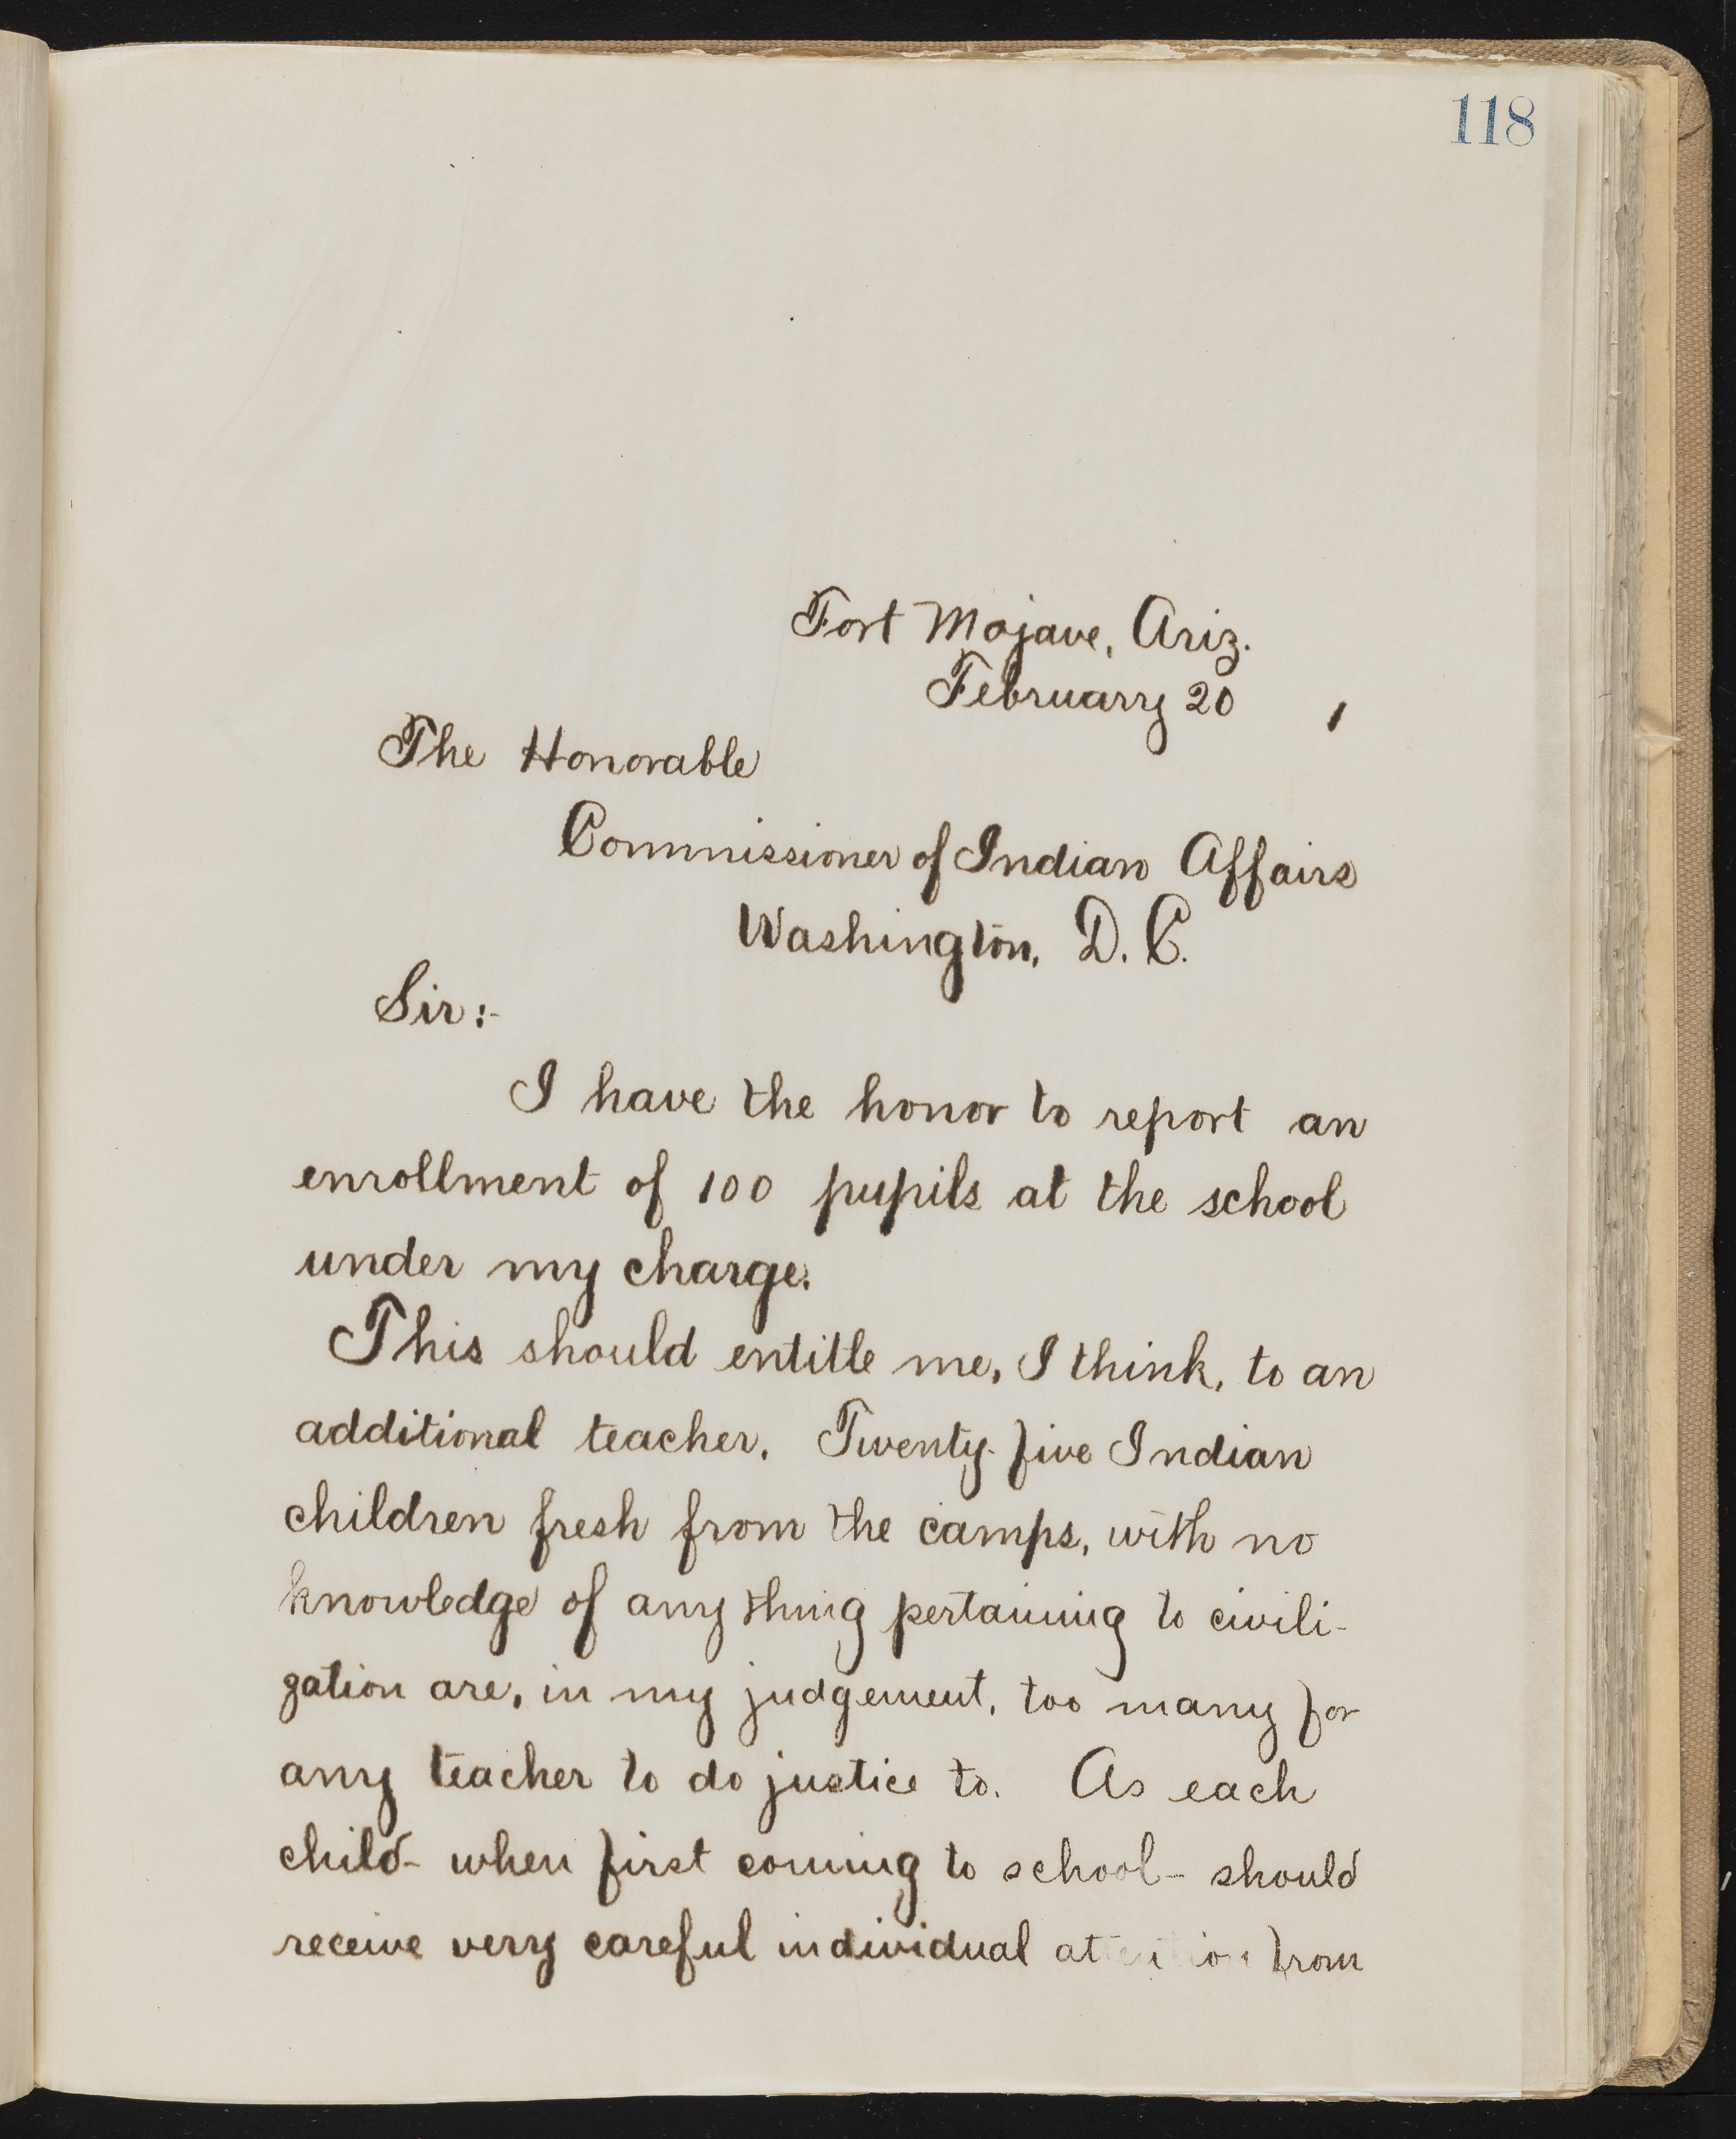 118
Fort Mojave, Ariz.
February 20 1
The Honorable
Commissioner of Indian Affairs
Washington, D. C.
Sir:-
I have the honor to report an
enrollment of 100 pupils at the school
under my charge.
This should entitle me, I think, to an
additional teacher. Twenty-five Indian
children fresh from the camps, with no
knowledge of any thing pertaining to civili-
zation are, in my judgement, too many for
any teacher to do justice to. As each
child- when first coming to school- should
receive very careful individual attention from